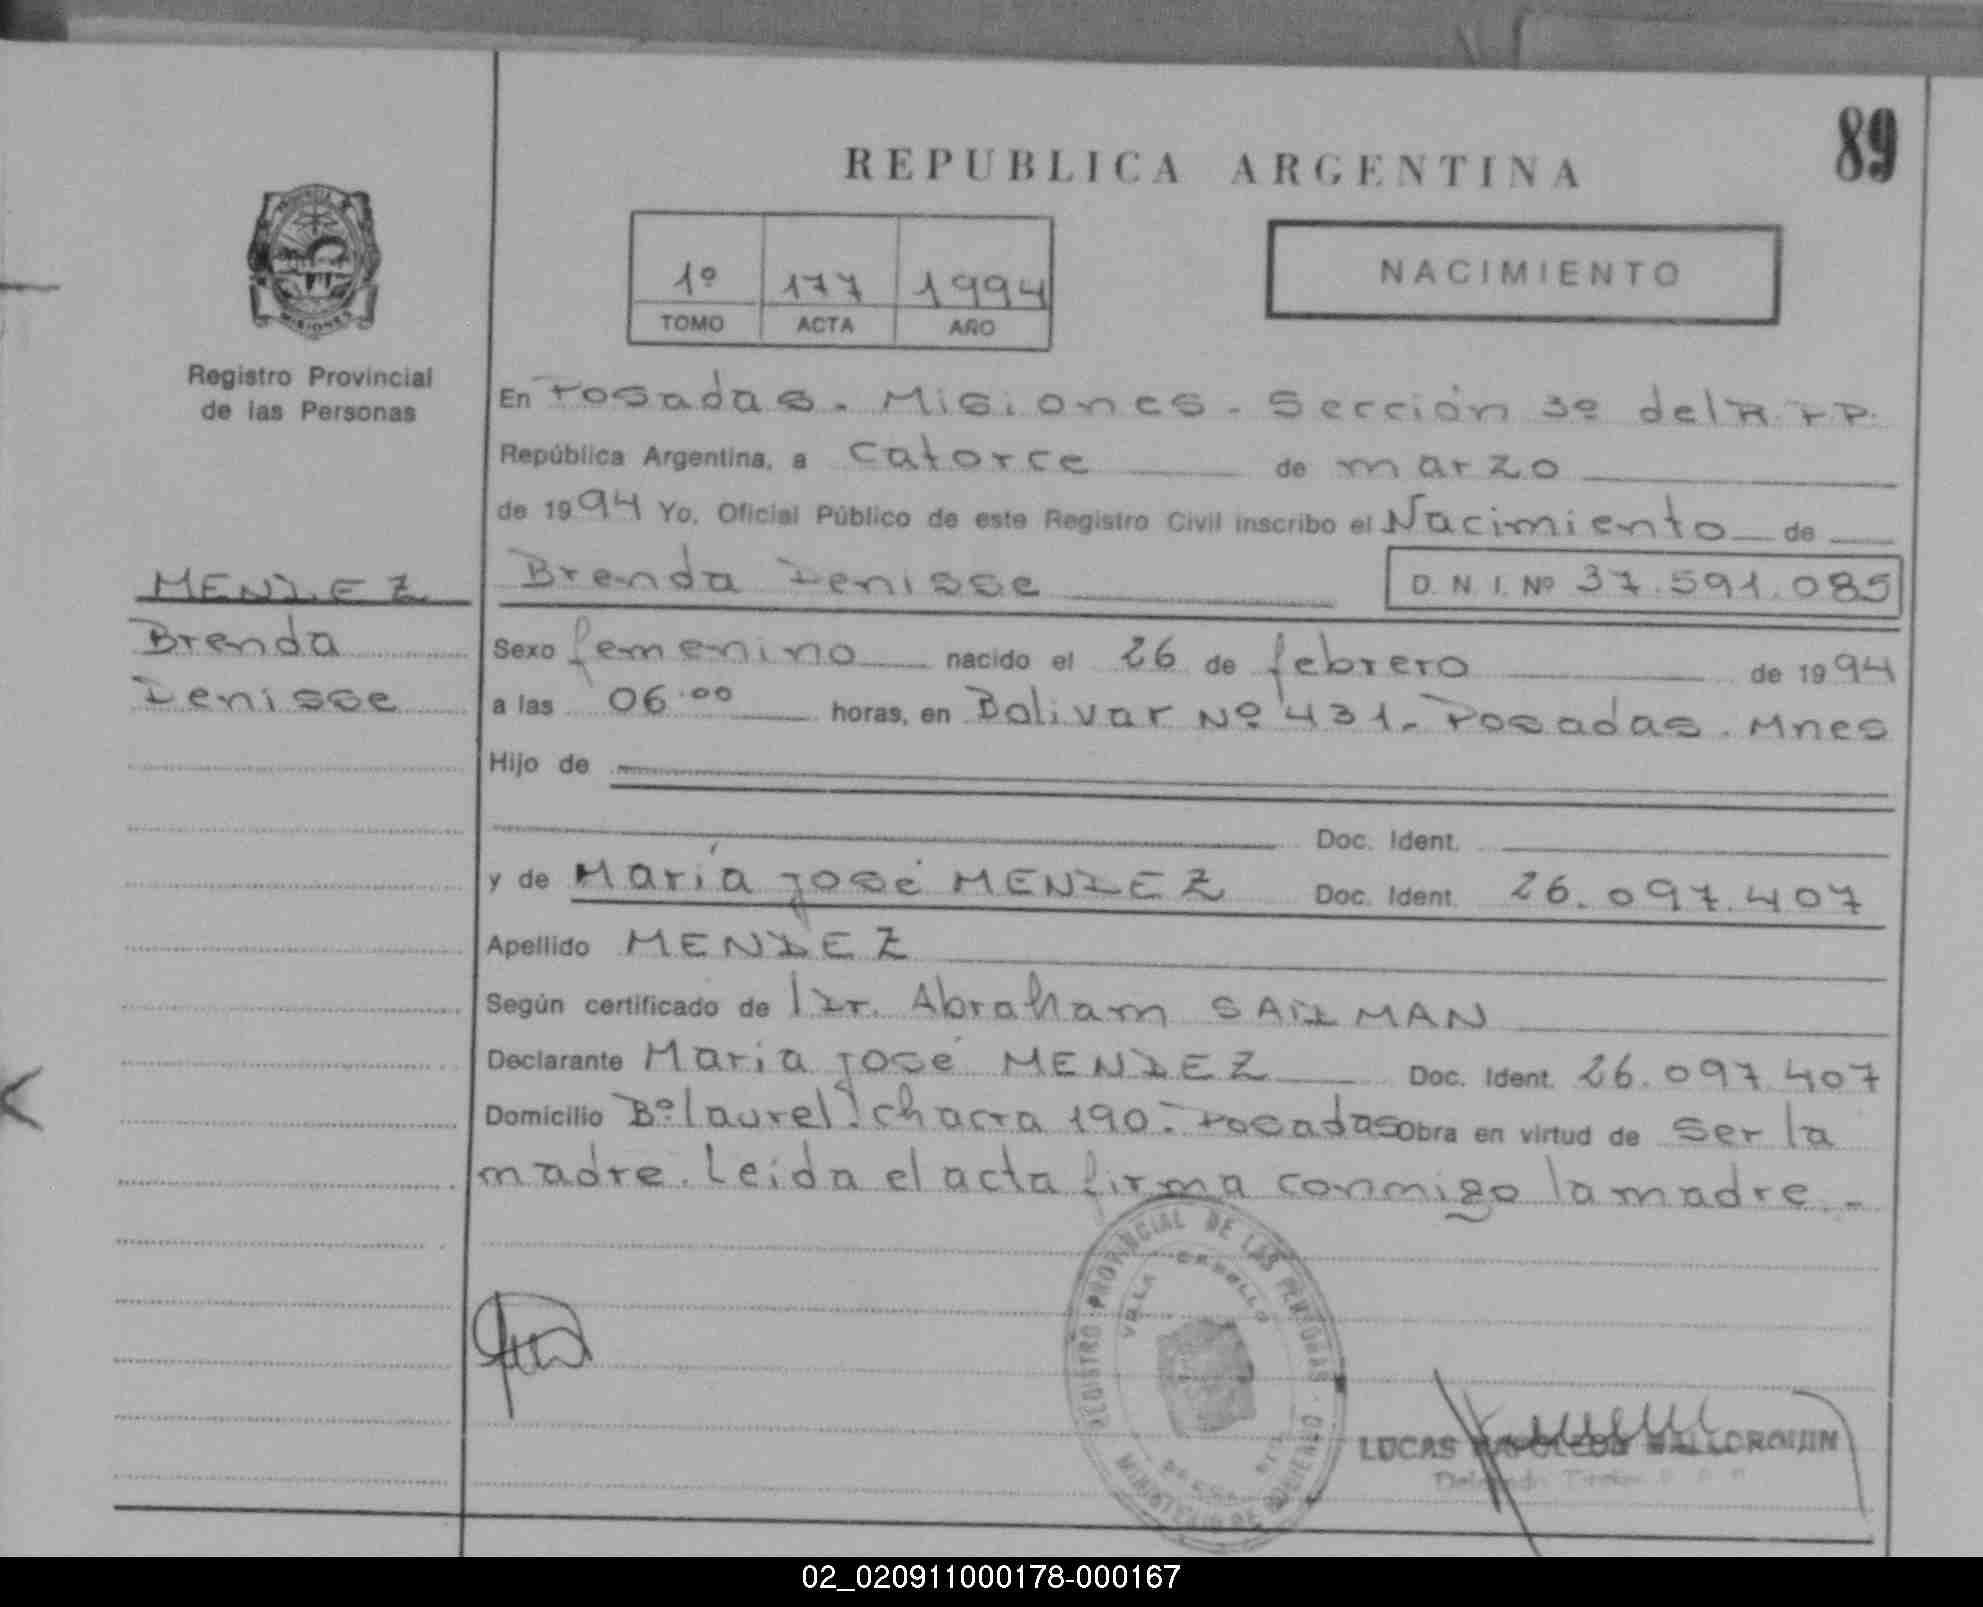 89
REPUBLICA ARGENTINA
1º 177 1994
TOMO ACTA AÑO
NACIMIENTO
PROVINCIA
MISIONES
Registro Provincial
de las Personas
MENDEZ
Brenda
Denisse
En Posadas. Misiones. Sección 3º del R.P.P.
República Argentina, a catorce de marzo
de 1994 Yo, Oficial Público de este Registro Civil inscribo el Nacimiento de
Brenda Denisse D. N. I. Nº 37.591.085
Sexo femenino nacido el 26 de febrero de 1994
a las 06.00 horas, en Bolivar Nº 431. Posadas. Mnes
Hijo de
Doc. Ident.
y de María José MENDEZ Doc. Ident. 26.097.407
Apellido MENDEZ
Según certificado de Dr. Abraham
Declarante María José MENDEZ Doc. Ident. 26.097.407
Domicilio Bº laurel. chacra 190. Posadas Obra en virtud de ser la
madre. Leida el acta firma conmigo la madre.-
REGISTRO PROVINCIAL DE LAS PERSONAS
MINISTERIO DE GOBIERNO
LUCAS
02_020911000178-000167